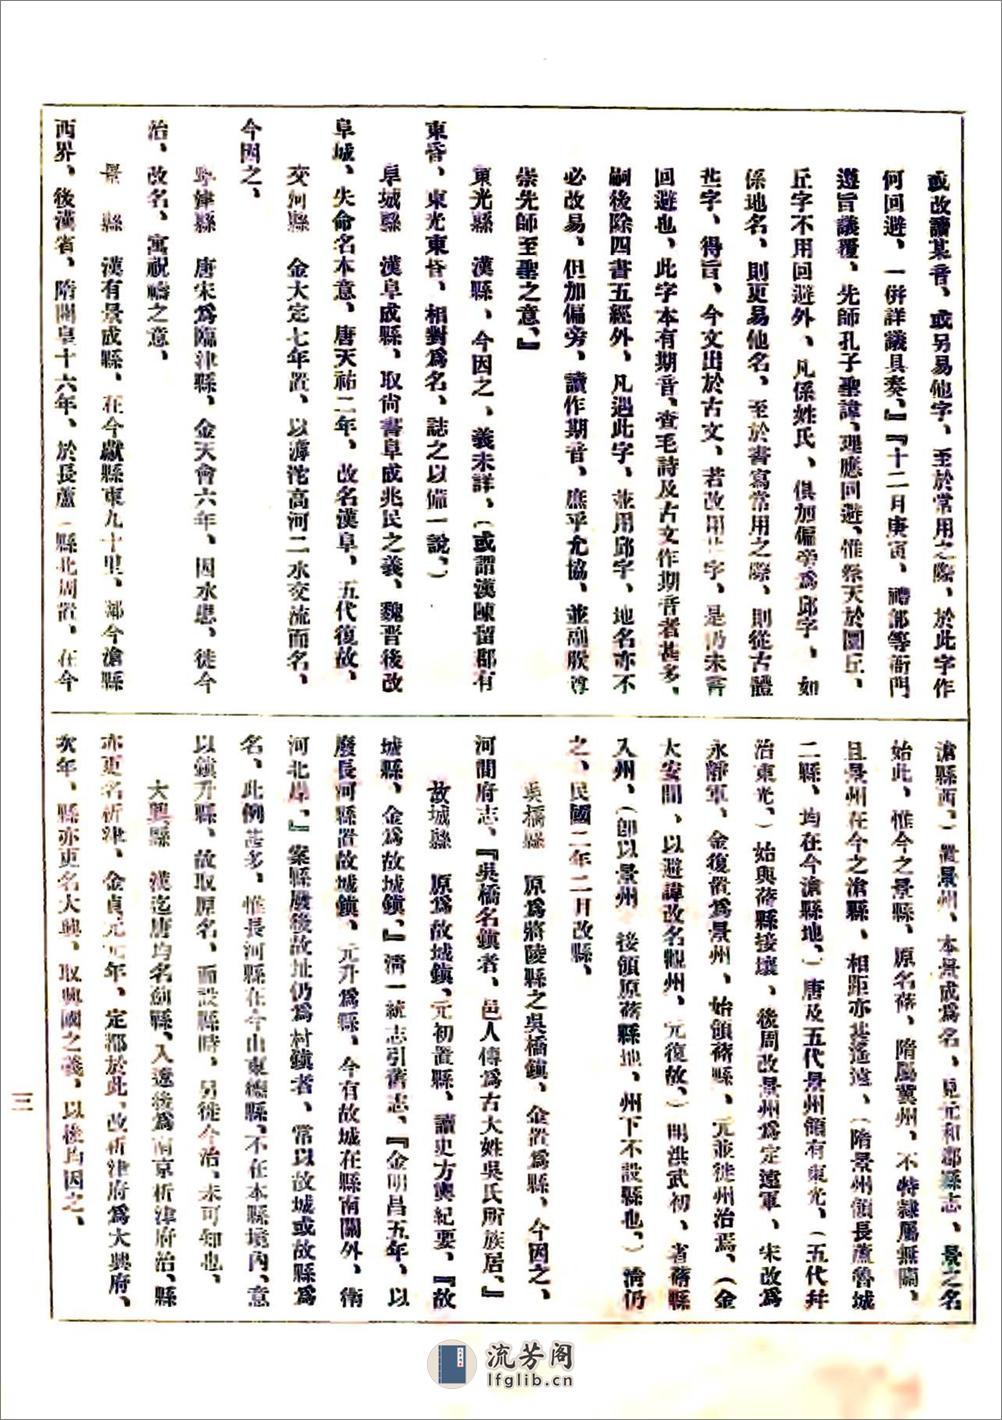 或改讀某音、或另易他字、至於常用之際、於此字作
何回避、一併詳議具奏、』『十二月庚寅、禮部等衙門
遵旨議覆、先師孔子聖諱、理應回避、惟祭天於圜丘、
丘字不用回避外、凡係姓氏、俱加偏旁爲邱字、如
係地名、則更易他名、至於書寫常用之際、則從古體
丠字、得旨、今文出於古文、若改用丠字、是仍未嘗
回避也、此字本有期音、查毛詩及古文作期音者甚多、
嗣後除四書五經外、凡遇此字、並用邱字、地名亦不
必改易、但加偏旁、讀作期音、庶乎允協、並副朕尊
崇先師至聖之意、』
東光縣　漢縣、今因之、義未詳、（或謂漢陳留郡有
東昏、東光東昏、相對爲名、誌之以備一說、）
阜城縣　漢阜成縣、取尚書阜成兆民之義、魏晋後改
阜城、失命名本意、唐天祐二年、改名漢阜、五代復故、
交河縣　金大定七年置、以滹沱高河二水交流而名、
今因之、
寧津縣　唐宋爲臨津縣、金天會六年、因水患、徙今
治、改名、寓祝禱之意、
景　縣　漢有景成縣、在今獻縣東九十里、鄰今滄縣
西界、後漢省、隋開皇十六年、於長蘆（縣北周置、在今
滄縣西、）置景州、本景成爲名、見元和郡縣志、景之名
始此、惟今之景縣、原名蓨、隋屬冀州、不特隸屬無關、
且景州在今之滄縣、相距亦甚遙遠、（隋景州領長蘆魯城
二縣、均在今滄縣地、）唐及五代景州領有東光、（五代幷
治東光、）始與蓨縣接壤、後周改景州爲定遠軍、宋改爲
永靜軍、金復置爲景州、始領蓨縣、元並徙州治焉、（金
大安間、以避諱改名觀州、元復故、）明洪武初、省蓨縣
入州、（卽以景州　後領原蓨縣地、州下不設縣也、）清仍
之、民國二年二月改縣、
吳橋縣　原爲將陵縣之吳橋鎮、金置爲縣、今因之、
河間府志、『吳橋名鎮者、邑人傳爲古大姓吳氏所族居、』
故城縣　原爲故城鎮、元初置縣、讀史方輿紀要、『故
城縣、金爲故城鎮、』清一統志引舊志、『金明昌五年、以
廢長河縣置故城鎮、元升爲縣、今有故城在縣南關外、衛
河北岸、』案縣廢後故址仍爲村鎮者、常以故城或故縣爲
名、此例甚多、惟長河縣在今山東德縣、不在本縣境內、意
以鎮升縣、故取原名、而設縣時、另徙今治、未可知也、
大興縣　漢迄唐均名薊縣、入遼後爲南京析津府治、縣
亦更名析津、金貞元元年、定都於此、改析津府爲大興府、
次年、縣亦更名大興、取興國之義、以後均因之、
三
流芳阁
lfglib.cn